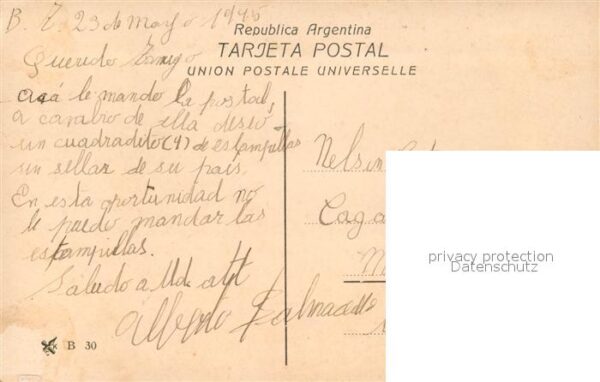 B. 23 de mayo 1945
Republica Argentina
TARJETA POSTAL
UNION POSTALE UNIVERSELLE
Querido
acá le mando la postal,
a cambio de ella deseo
un cuadradito (4) de estampillas
sin sellar de su pais.
En esta oportunidad no
le puedo mandar las
estampillas.
Saludo a Ud. att
Alberto
Nelsin
Caga
privacy protection
Datenschutz
B 30